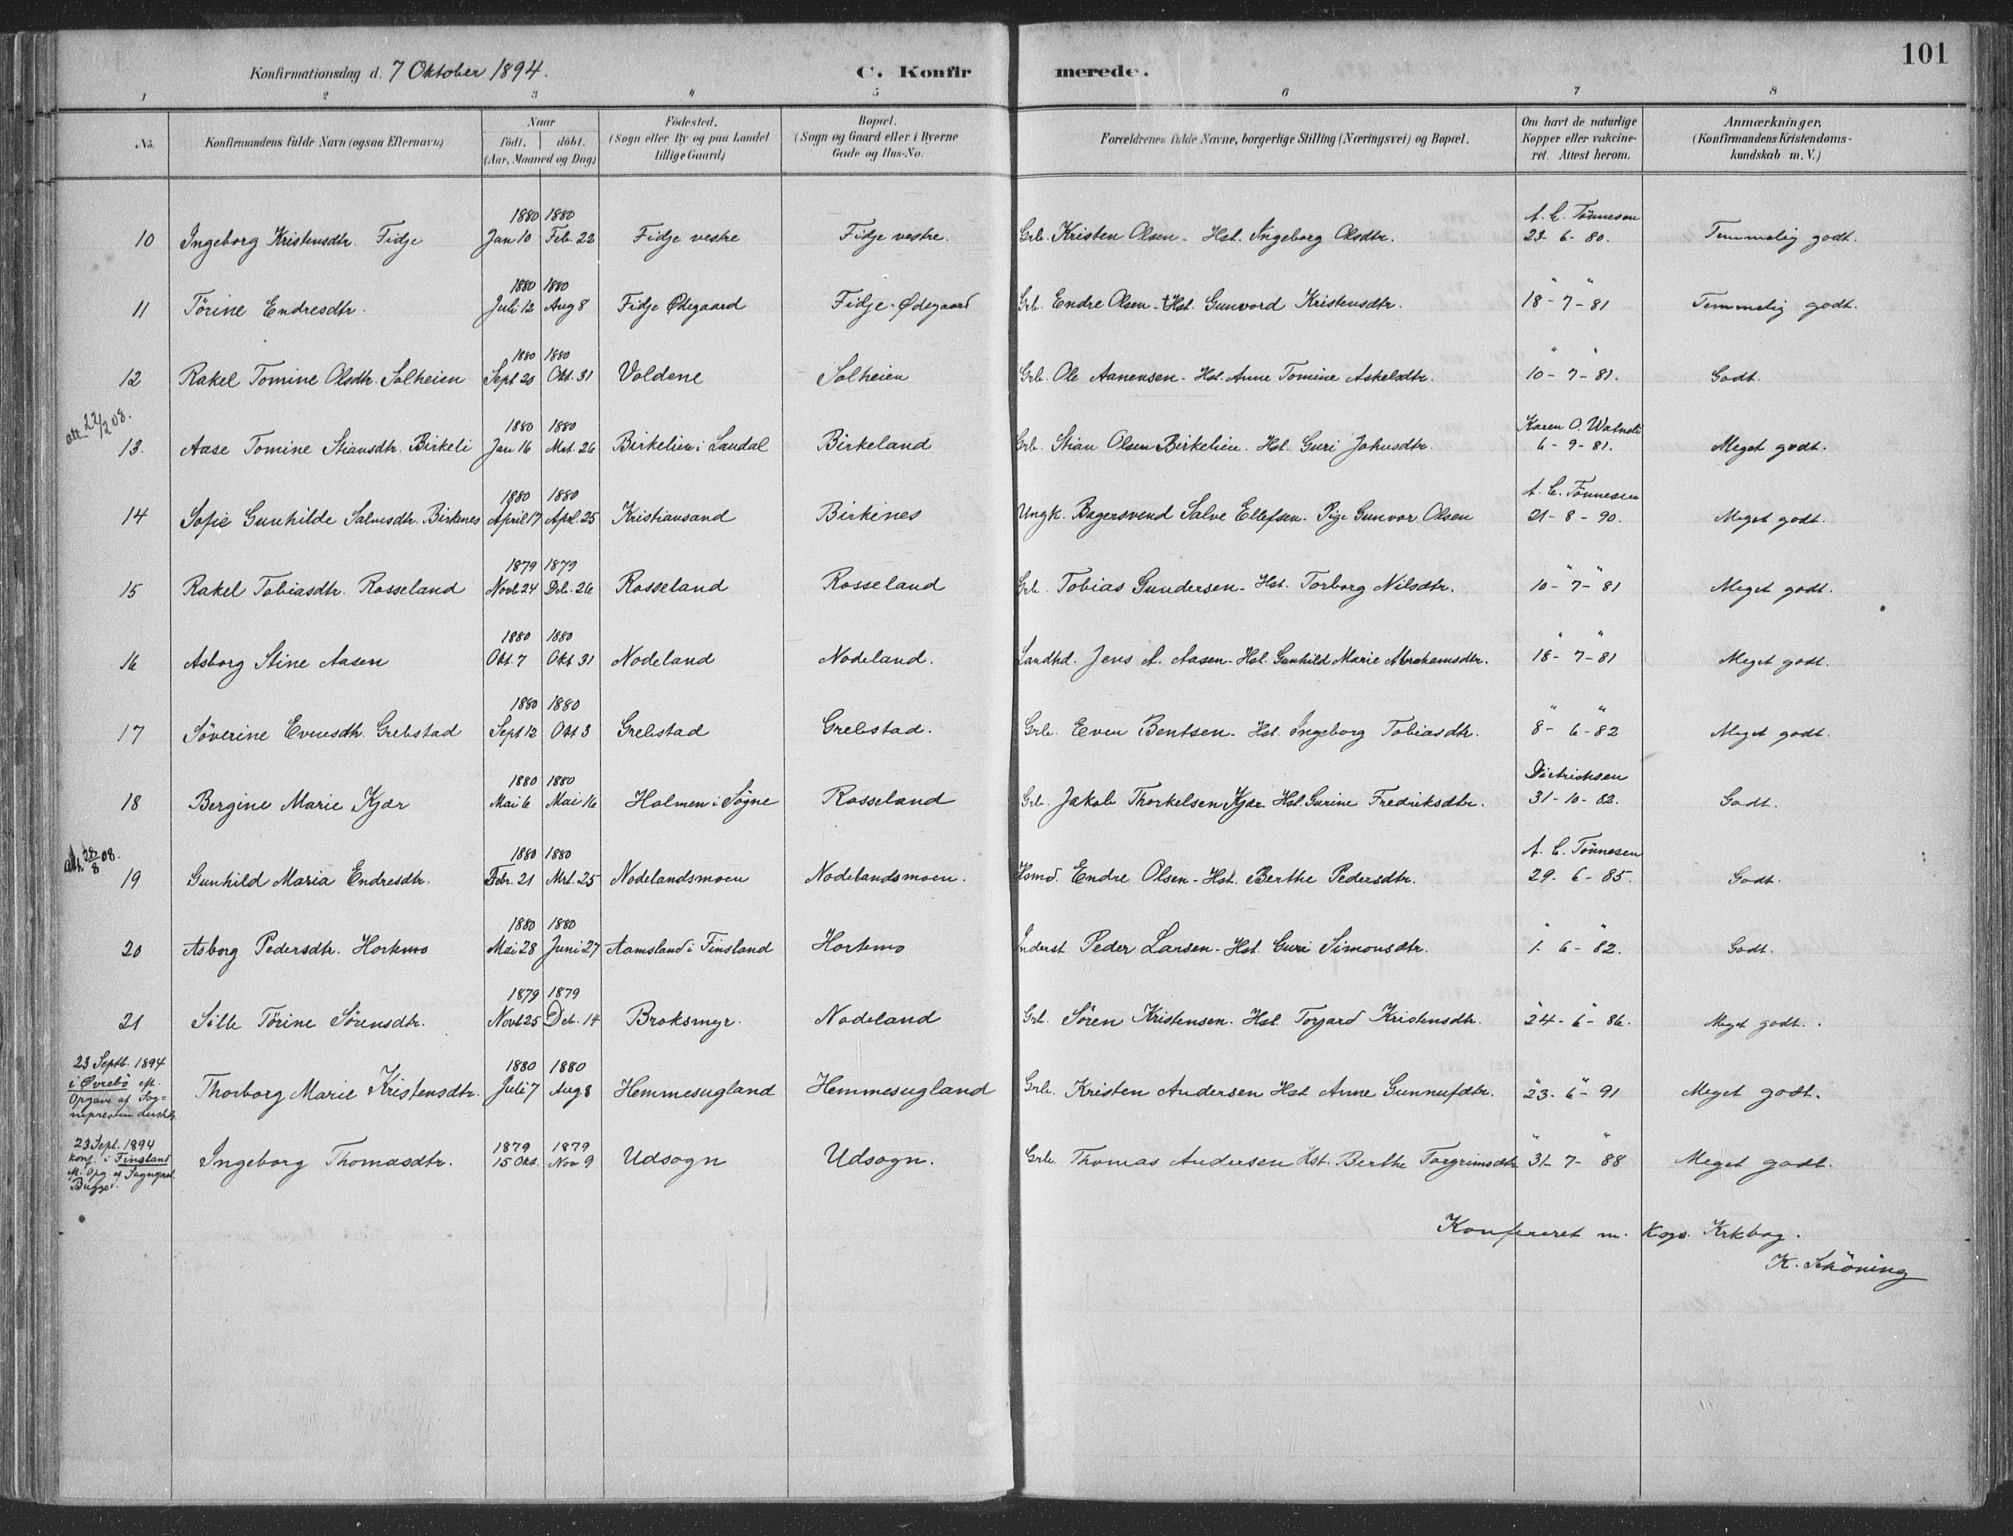 101
Konfirmationsdag d. 7 Oktober 1894. C. Konfirmerede.
1 2 3 4 5 6 7 8
No. Konfirmandens fulde Navn (ogsaa Efternavn) Naar født. døbt. (Aar, Maaned og Dag) Fødested. (Sogn eller By og paa Landet tillige Gaard) Bopæl. (Sogn og Gaard eller i Byerne Gade og Hus-No. Forældrenes fulde Navne, borgerlige Stilling (Næringsvei) og Bopæl. Om havt de naturlige Kopper eller vakcineret. Attest herom. Anmærkninger. (Konfirmandens Kristendomskundskab m. V.)
10 Ingeborg Kristensdtr. Fidje 1880 Jan 10 1880 Feb. 22 Fidje vestre Fidje vestre. Grb. Kristen Olsen - Hst. Ingeborg Olsdtr. A. C. Tønnesen 23-6-80. Temmelig godt.
11 Tørine Endresdtr. 1880 Juli 12 1880 Aug 8 Fidje Ødegaard Fidje-Ødegaard Grb. Endre Olsen - Hst. Gunvord Kristensdtr. " " 18-7-81 Temmelig godt.
12 Rakel Tomine Olsdtr. Solheien 1880 Sept 20 1880 Okt. 31 Voldene Solheien Grb. Ole Aanensen - Hst. Anne Tomine Askelsdtr. " " 10-7-81. Godt.
att. 22/2 08.
13. Aase Tomine Stiansdtr. Birkeli 1880 Jan 16 1880 Mrt. 26 Birkelien i Laudal Birkeland Grb. Stian Olsen Birkelien. Hst. Guri Johnsdtr. Karen O. Watneli 6-9-81. Meget godt.
14 Sofie Gunhilde Salvesdtr. Birkenes 1880 April 17 1880 Apl. 25 Kristiansand Birkenes Ungk. Bagersvend Salve Ellefsen. Pige Gunvor Olsen A. C. Tønnesen 21-8-90. Meget godt.
15 Rakel Tobiasdtr. Rosseland 1879 Novb 24 1879 Deb. 26 Rosseland Rosseland Grb. Tobias Gundersen - Hst. Torborg Nilsdtr. " " 10-7-81 Meget godt.
16 Asborg Stine Aasen 1880 Okt. 7 1880 Okt 31 Nodeland Nodeland. Landhd. Jens A. Aasen - Hst. Gunhild Marie Abrahamsdtr. " " 18-7-81 Meget godt.
17 Søverine Evensdtr. Grebstad 1880 Sept 12 1880 Okt 3 Grebstad Grebstad. Grb. Even Bentsen - Hst. Ingeborg Tobiasdtr. " " 8-6-82 Meget godt.
18 Bergine Marie Kjær 1880 Mai 6 1880 Mai 16 Holmen i Søgne Rosseland Grb. Jakob Thorkelsen Kjær Hst. Gurine Fredriksdtr. Dietrichsen 31-10-82. Godt.
att. 28/8 08.
19 Gunhild Maria Endresdtr. 1880 Febr. 21 1880 Mrt. 25 Nodelandsmoen Nodelandsmoen. Hsmd. Endre Olsen - Hst. Berthe Pedersdtr. A. C. Tønnesen 29-6-85. Godt.
20 Asborg Pedersdtr. Hortemo 1880 Mai 28 1880 Juni 27 Aamsland i Finsland Hortemo Inderst Peder Larsen - Hst. Guri Simonsdtr. " " 1-6-82. Godt.
21 Sille Tørine Sørensdtr. 1879 Novb 25 1879 Deb. 14 Broksmyr. Nodeland Grb. Søren Kristensen. Hst. Torjard Kristensdtr. " " 24-6-86. Meget godt.
23 Septb. 1894
i Øvrebø eft.
Opgave af Sog-
nepresten dersteds
Thorborg Marie Kristensdtr. 1880 Juli 7 1880 Aug 8 Hemmesugland Hemmesugland Grb. Kristen Andersen Hst Anne Gunnufdtr. " " 23-6-91 Meget godt.
23 Sept. 1894
konf. i Finsland
eft. Opg af Sognepr.
Bugge.
Ingeborg Thomasdtr. 1879 15 Okt. 1879 Nov 9 Udsogn Udsogn. Grb. Thomas Andersen Hst. Berthe Torgrimsdtr " " 31-7-88 Meget godt.
Konfereret m. Ksgs. Krkbog.
K. Schöning